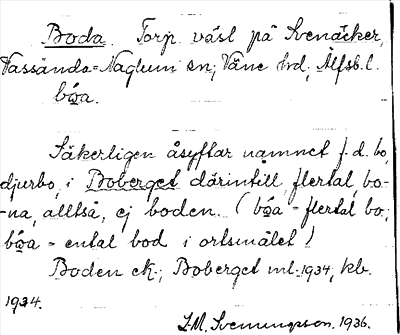 Boda. Torp väst på Svenäcker,
Vassända-Naglum sn; Väne hrd, Älfsb. l.
bòa.
Säkerligen åsyftar namnet f. d. bo,
djurbo, i Boberget därintill, flertal, bo-
na, alltså, ej boden. (bòa - flertal bo;
bòa - ental bod i ortsmålet)
Boden ek.; Boberget ml. 1934, kb.
1934.
J.M. Svenungson. 1936.